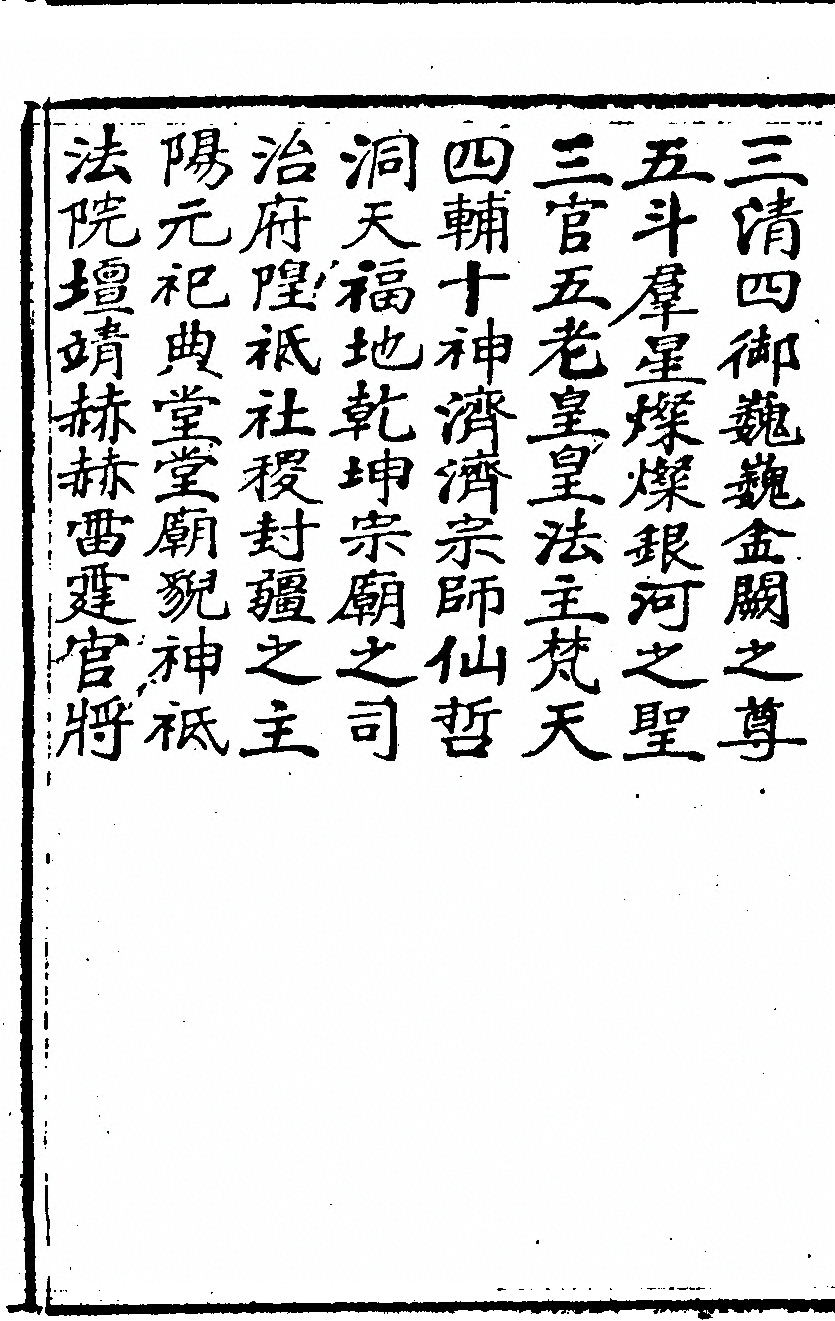 三清四御巍巍金闕之尊
五斗羣星燦燦銀河之聖
三官五老皇皇法主梵天
四輔十神濟濟宗師仙哲
洞天福地乾坤宗廟之司
治府隍祇社稷封疆之主
陽元祀典堂堂廟貌神祇
法院壇靖赫赫雷霆官將